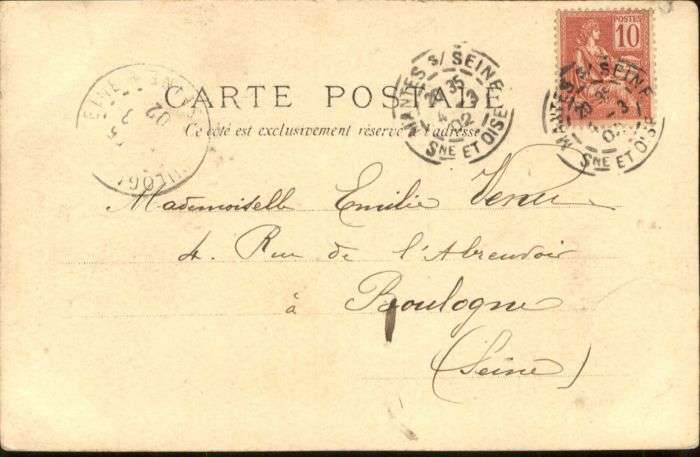 POSTES
10
CARTE POSTALE
Ce côté est exclusivement réservé à l'adresse
MANTES S/ SEINE
35
4 3
02
SNE ET OISE
MANTES S/ SEINE
3
02
SNE ET OISE
SEINE
3
02
Mademoiselle Emilie
4. Rue de l'Abreuvoir
à Boulogne
(Seine)